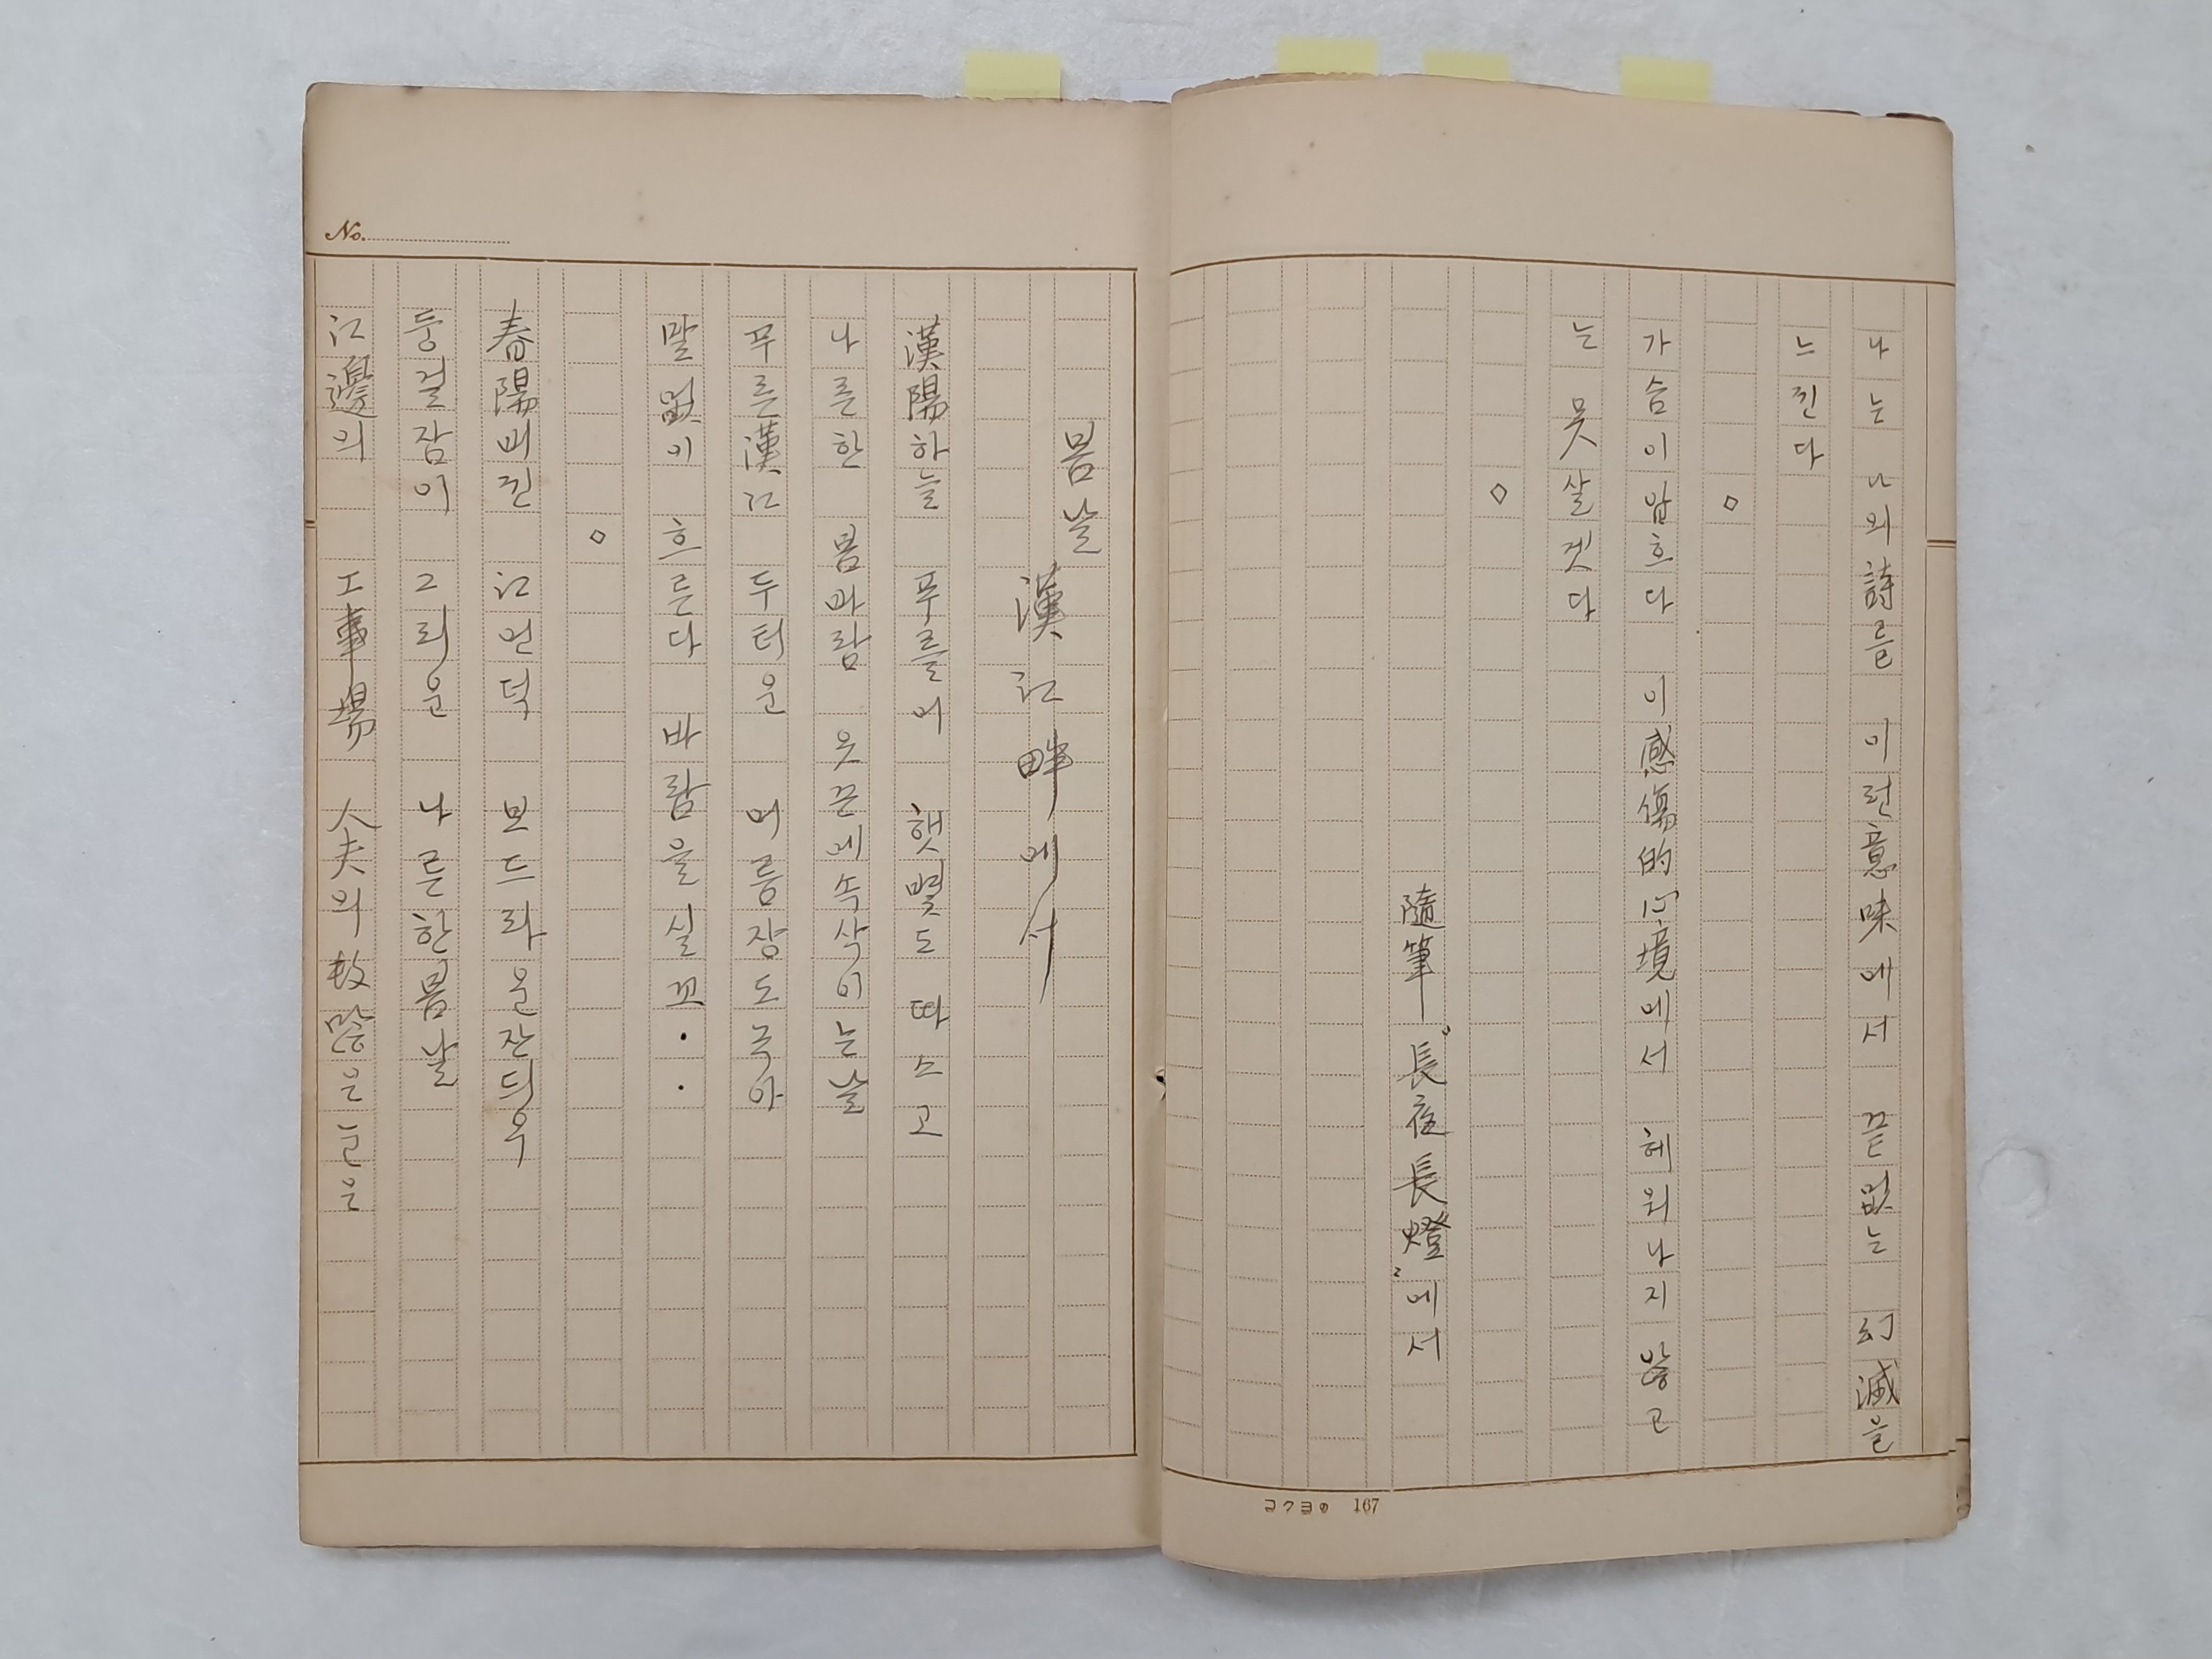 나는 나의詩를 이런意味에서 끝없는 幻滅을
느낀다
◇
가슴이앞흐다 이感傷的心境에서 헤워나지않고
는 못살겟다
◇
隨筆 “長夜長燈”에서
コクヨの 167
봄날
漢江畔에서
漢陽하늘 푸를어 햇볓도 따스고
나른한 봄바람 옷끈에속삭이는날
푸른漢江 두터운 어름장도녹아
말없이 흐른다 바람을실꼬··
◇
春陽빼낀 江언덕 보드라운잔듸우
둥걸잠이 그리운 나른한봄날
江邊의 工事場 人夫의
No.